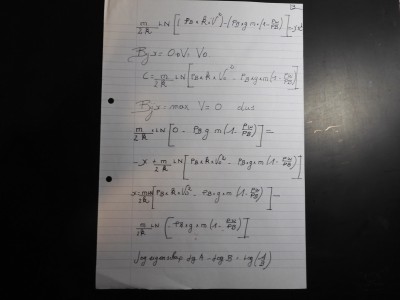 m/2k * LN [(PB * k * V²) - (PB * g * m * (1 - PW/PB)] = -x+C
By x = 0 , V = V0
C = m/2k * LN [PB * k * V0² - PB * g * m (1 - PW/PB)]
By x = max V = 0 dus
m/2k * LN [0 - PB * g * m (1 - PW/PB)] =
-x + m/2k * LN [PB * k * V0² - PB * g * m (1 - PW/PB)]
x = m/2k [PB * k * V0² - PB * g * m (1 - PW/PB)] -
m/2k LN (- PB * g * m (1 - PW/PB)]
log eigenschap log A - log B = log (A/B)